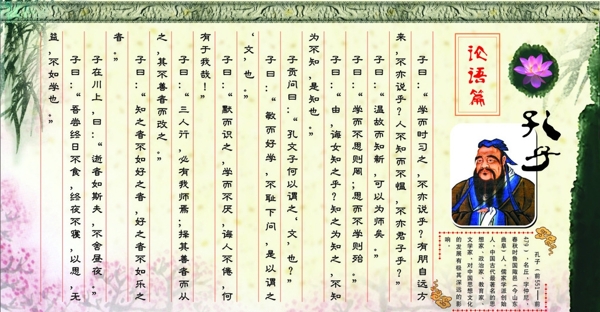 孔子
论语篇
孔子（前551——前
479），名丘，字仲尼，
春秋时鲁国陬邑（今山东
曲阜）人，儒家学派创始
人，中国古代最著名的思
想家、政治家、教育家、
文学家，对中国思想文化
的发展有极其深远的影
响。
子曰：“学而时习之，不亦说乎？有朋自远方
来，不亦说乎？人不知而不愠，不亦君子乎？”
子曰：“温故而知新，可以为师矣。”
子曰：“学而不思则罔；思而不学则殆。”
子曰：“由，诲女知之乎？知之为知之，不知
为不知，是知也。”
子贡问曰：“孔文子何以谓之‘文’也？”
子曰：“敏而好学，不耻下问，是以谓之
‘文’也。”
子曰：“默而识之，学而不厌，诲人不倦，何
有于我哉！”
子曰：“三人行，必有我师焉；择其善者而从
之，其不善者而改之。”
子曰：“知之者不如好之者，好之者不如乐之
者。”
子在川上，曰：“逝者如斯夫，不舍昼夜。”
子曰：“吾尝终日不食，终夜不寝，以思，无
益，不如学也。”